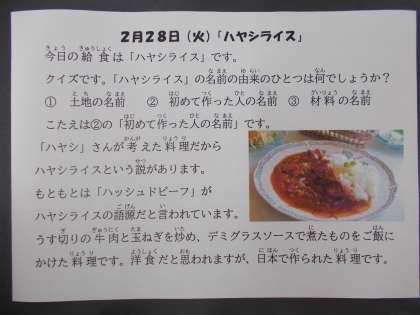 2月28日（火）「ハヤシライス」
今日の給食は「ハヤシライス」です。
クイズです。「ハヤシライス」の名前の由来のひとつは何でしょうか？
① 土地の名前　② 初めて作った人の名前　③ 材料の名前
こたえは②の「初めて作った人の名前」です。
「ハヤシ」さんが考えた料理だから
ハヤシライスという説があります。
もともとは「ハッシュドビーフ」が
ハヤシライスの語源だと言われています。
うす切りの牛肉と玉ねぎを炒め、デミグラスソースで煮たものをご飯に
かけた料理です。洋食だと思われますが、日本で作られた料理です。